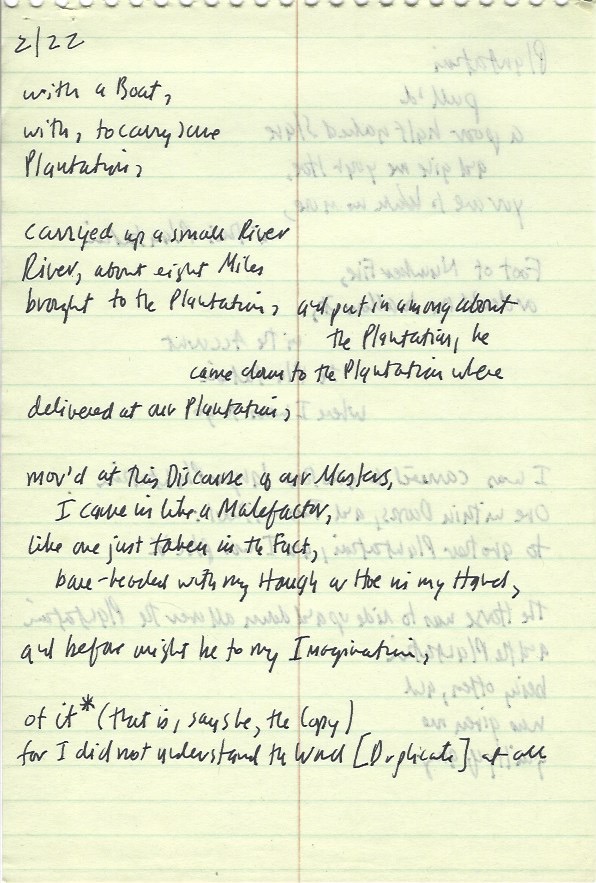 2/22
with a Boat,
with, to carry some
Plantation,
carryed up a small River
River, about eight Miles
brought to the Plantation, and put in among about
the Plantation, he
came down to the Plantation where
delivered at our Plantation,
mov'd at this Discourse of our Masters,
I came in like a Malefactor,
like one just taken in the Fact,
bare-headed with my Haugh or Hoe in my Hand,
and before might be to my Imagination,
of it* (that is, says he, the Copy)
for I did not understand the Word [Duplicate] at all